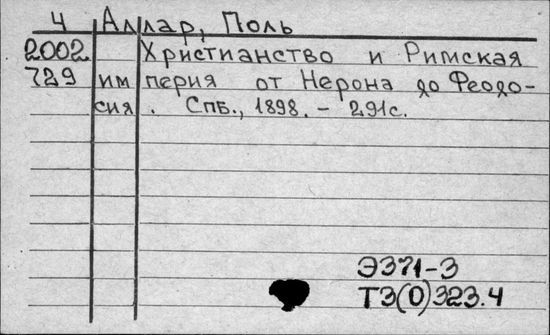 4 Аллар, Поль
2002 Христианство и Римская
729 империя от Нерона до Феодо-
сия. Спб., 1898. - 291с.
Э371-3
Т3(0)323.4